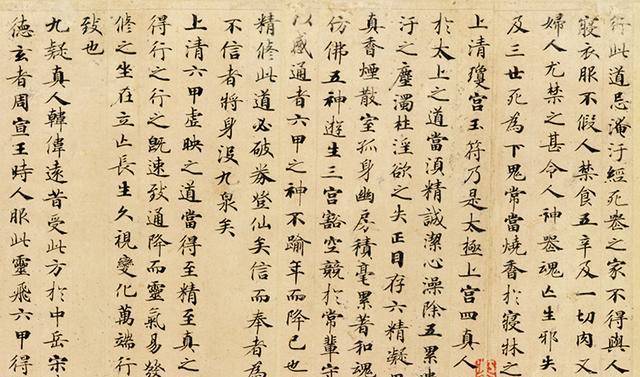 行此道忌淹汙經死喪之家不得與人
寢衣服不假人禁食五辛及一切肉又
婦人尤禁之甚令人神喪魂亡生邪失
及三世死為下鬼常當燒香於寢牀之
上清瓊宮玉符乃是太極上宮四真人
於太上之道當湏精誠潔心澡除五累
汙之塵濁杜淫欲之失正目存六精凝
真香煙散室孤身幽房積毫累著和魂
仿佛五神遊生三宮豁空競於常輩守
以感通者六甲之神不踰年而降已也
精修此道必破券登仙矣信而奉者為
不信者將身没九泉矣
上清六甲虛映之道當得至精至真之
得行之行之既速致通降而靈氣易發
修之坐在立亡長生久視變化萬端行
致也
九疑真人韓偉遠昔受此方於中岳宋
德玄者周宣王時人服此靈飛六甲得